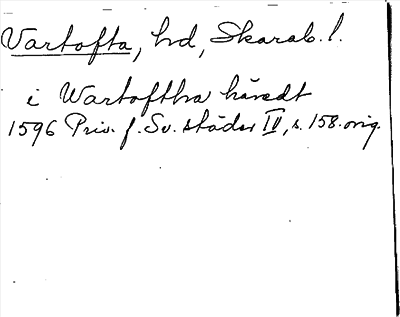 Vartofta, hd, Skarab. l.
i Wartofthra häredt
1596 Priv. f. Sv. städer III, s. 158. orig.